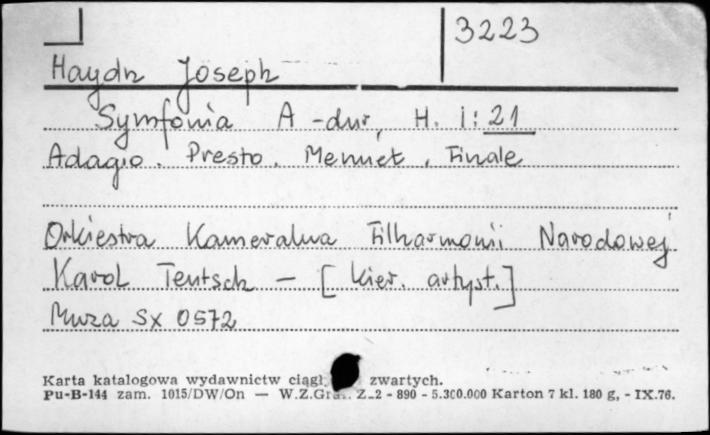 3223
Haydn Joseph
Symfonia A-dur, H. I: 21
Adagio. Presto. Menuet. Finale
Orkiestra Kameralna Filharmonii Narodowej
Karol Teutsch – [kier. artyst.]
Muza SX 0572
Karta katalogowa wydawnictw ciągł. zwartych.
Pu-B-144 zam. 1015/DW/On — W.Z.Gra. Z.2 - 890 - 5.300.000 Karton 7 kl. 180 g, - IX.76.